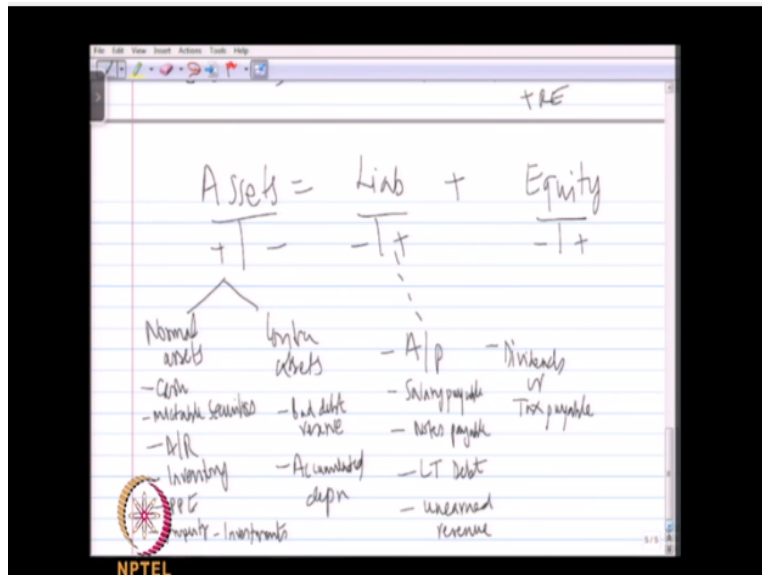 File Edit View Insert Actions Tools Help
+RE
Assets = Liab + Equity
+ - - + - +
Normal assets
- Cash
- mktable securities
- A/R
- Inventory
PPE
- Investments
Contra assets
- Bad debt reserve
- Accumulated depn
- A/P
- Salary payable
- Notes payable
- LT Debt
- unearned revenue
- Dividends or Tax payable
5/5
NPTEL